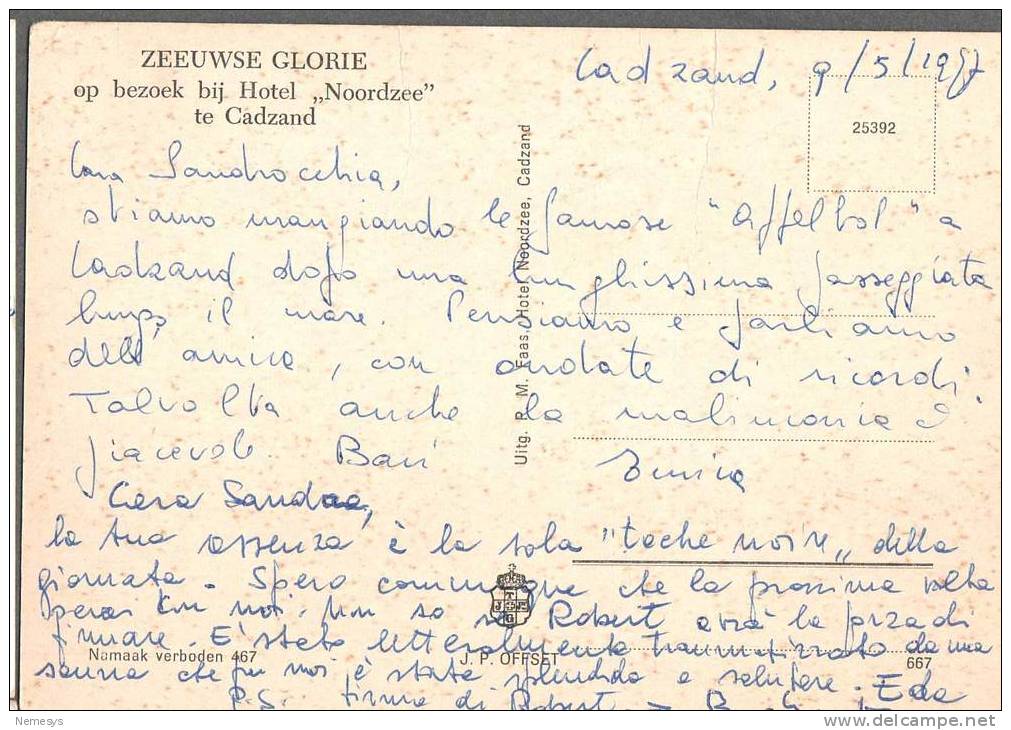 ZEEUWSE GLORIE
op bezoek bij Hotel „Noordzee”
te Cadzand
Cadzand, 9/5/1987
25392
Cara Sandrocchia,
stiamo mangiando le famose "Affelbol" a
Cadzand dopo una lunghissima passeggiata
lungo il mare. Pensiamo e parliamo
dell'amica, con ondate di ricordi.
Talvolta anche la malinconia è
piacevole. Baci
Enrica
Cara Sandra,
la tua assenza è la sola "tache noire" della
giornata. Spero comunque che la prossima volta
verrai con noi. Non so se Robert avrà la forza di
firmare. E' stato letteralmente traumatizzato da una
sauna che per noi è stata splendida e salutare. Eda
P.S. firma di Robert
Uitg. R. M. Faas, Hotel Noordzee, Cadzand
Namaak verboden 467
J. P. OFFSET
667
Nemesys
www.delcampe.net